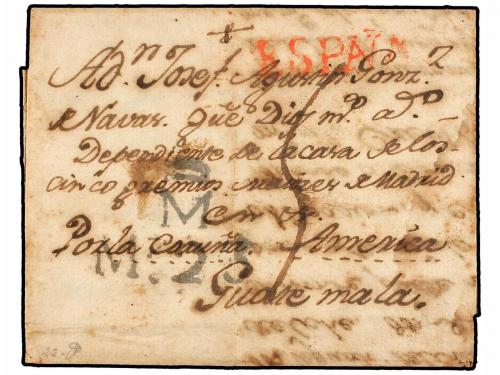 +
ESPAÑA
A Dn. Josef. Agustin Gonz.z
de Navas. que Dios m.s a.s
Dependiente de la casa de los
cinco gremios maiores de Madrid
en
M
Por la Coruña. America
M. 23
Guatemala.